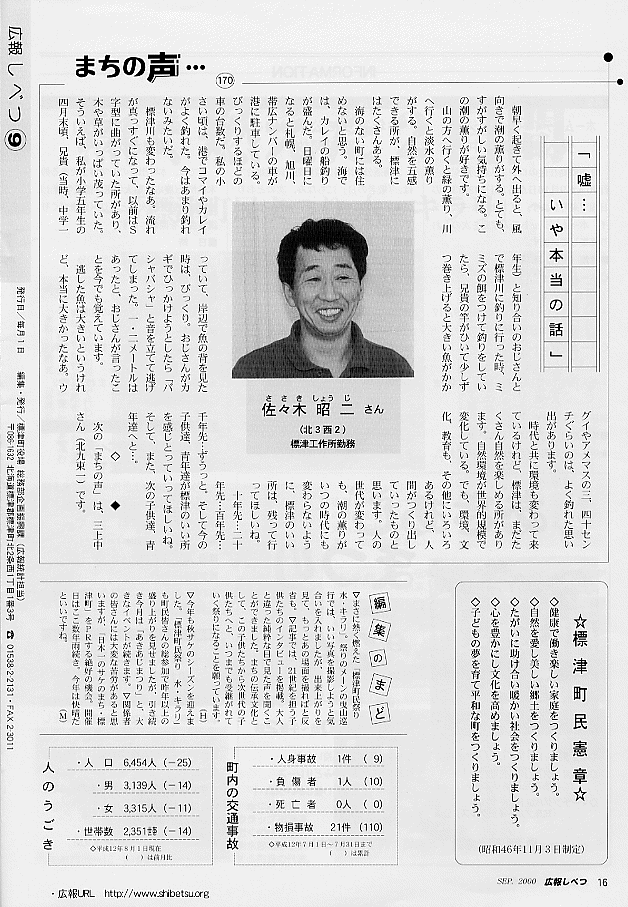 広報しべつ⑨
まちの声…
170
「嘘…
いや本当の話」
朝早く起きて外へ出ると、風
向きで潮の薫りがする。とても、
すがすがしい気持ちになる。こ
の潮の薫りが好きです。
山の方へ行くと緑の薫り、川
へ行くと淡水の薫り
がする。自然を五感
できる所が、標津に
はたくさんある。
海のない町には住
めないと思う。海で
は、カレイの船釣り
が盛んだ。日曜日に
なると札幌、旭川、
帯広ナンバーの車が
港に駐車している。
びっくりするほどの
車の台数だ。私の小
さい頃は、港でコマイやカレイ
がよく釣れた。今はあまり釣れ
ないみたいだ。
標津川も変わったなあ。流れ
が真っすぐになって、以前はS
字型に曲がっていた所があり、
木や草がいっぱい茂っていた。
そういえば、私が小学五年生の
四月末頃、兄貴（当時、中学一
年生）と知り合いのおじさんと
で標津川に釣りに行った時、ミ
ミズの餌をつけて釣りをしてい
たら、兄貴の竿がひいて少しず
つ巻き上げると大きい魚がかか
っていて、岸辺で魚の背を見た
時は、びっくり。おじさんがカ
ギでひっかけようとしたら「バ
シャバシャ」と音を立てて逃げ
てしまった。一・二メートルは
あったと、おじさんが言ったこ
とを今でも覚えています。
逃した魚は大きいというけれ
ど、本当に大きかったなあ。ウ
グイやアメマスの三、四十セン
チぐらいのは、よく釣れた思い
出があります。
時代と共に環境も変わって来
ているけれど、標津は、まだた
くさん自然を楽しめる所があり
ます。自然環境が世界的規模で
変化している。でも、環境、文
化、教育も、その他にいろいろ
あるけれど、人
間がつくり出し
ていったものと
思います。人の
世代が変わって
も、潮の薫りが
いつの時代にも
変わらないよう
に、標津のいい
所は、残って行
ってほしいね。
十年先…二十
年先…百年先…
千年先…ずうっと、そして今の
子供達、青年達が標津のいい所
を感じとっていってほしいね。
そして、また、次の子供達、青
年達へと…。
◇　◆
次の「まちの声」は、三上中
さん（北九東一）です。
佐々木 昭二 さん
ささき しょうじ
（北3西2）
標津工作所勤務
☆標津町民憲章☆
◇健康で働き楽しい家庭をつくりましょう。
◇自然を愛し美しい郷土をつくりましょう。
◇たがいに助け合い暖かい社会をつくりましょう。
◇心を豊かにし文化を高めましょう。
◇子どもの夢を育て平和な町をつくりましょう。
（昭和46年11月3日制定）
編集のまど
▽まさに熱く燃えた「標津町民祭り
水・キラリ」。祭りのメーンの曳山巡
行では、いい写真を撮影しようと気
合いを入れましたが、出来上がりを
見て、もっとあの場面を撮ればと反
省も。▽記事では、21世紀を担う子
供たちのインタビューを掲載。大人
と違った純粋な目で見た声を聞くこ
とができました。まちの伝承文化と
して、この子供たちから次世代の子
供たちへと、いつまでも受継がれて
いく祭りになることを願っています。
（H）
▽今年も秋サケのシーズンを迎えま
した。「標津町民祭り 水・キラリ」
も町民皆さんの総参加で昨年以上の
盛り上がりを見せましたが、引き続
き今月は「あきあじまつり」と、大
きなイベントが続きます。▽関係者
の皆さんには大変な苦労があると思
いますが、「日本一のサケのまち・標
津町」をPRする絶好の機会。開催
日はここ数年雨続き、今年は快晴だ
といいですね。　（M）
町内の交通事故
・人身事故　1件（　9）
・負傷者　1人（10）
・死亡者　0人（　0）
・物損事故　21件（110）
◇平成12年7月1日～7月31日まで
（　）は累計
人のうごき
・人　口　6,454人（−25）
・男　3,139人（−14）
・女　3,315人（−11）
・世帯数　2,351世帯（−14）
◇平成12年8月1日現在
（　）は前月比
発行日／毎月1日　編集・発行／標津町役場 総務部企画振興課（広報統計担当）
〒086-1632 北海道標津郡標津町北2条西1丁目1番3号　☎01538-2-2131・FAX 2-3011
・広報URL　http://www.shibetsu.org
SEP. 2000　広報しべつ　16